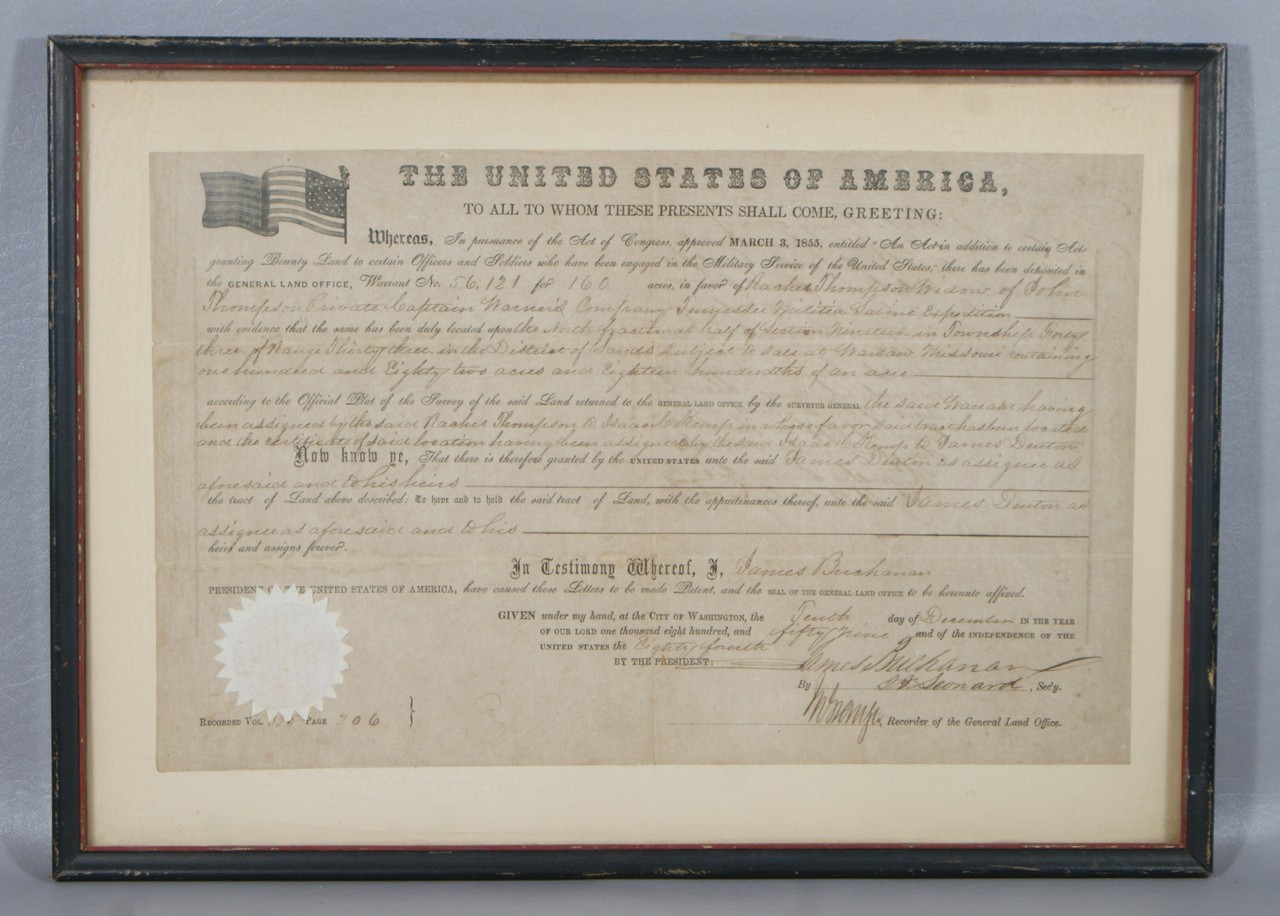 THE UNITED STATES OF AMERICA,
TO ALL TO WHOM THESE PRESENTS SHALL COME, GREETING:
Whereas, In pursuance of the Act of Congress, approved MARCH 3, 1855, entitled "An Act in addition to certain Acts
granting Bounty Land to certain Officers and Soldiers who have been engaged in the Military Service of the United States," there has been deposited in
the GENERAL LAND OFFICE, Warrant No. 56,121 for 160 acres, in favor of Rachel Thompson Widow of John
Thompson Private Captain Warner's Company Tennessee Militia Sabine Expedition
with evidence that the same has been duly located upon the North fractional half of Section Nineteen in Township Forty
three, of Range Thirty three, in the District of Lands subject to sale at Warsaw Missouri containing
one hundred and Eighty two acres and Eighteen hundredths of an acre
according to the Official Plat of the Survey of the said Land returned to the GENERAL LAND OFFICE by the SURVEYOR GENERAL the said Warrant having
been assigned by the said Rachel Thompson to Isaac C Kemp in whose favor said tract has been located
and the certificate of said location having been assigned by the said Isaac C Kemp to James Denton
Now know ye, That there is therefore granted by the UNITED STATES unto the said James Denton as assignee as
aforesaid and to his heirs
the tract of Land above described: To have and to hold the said tract of Land, with the appurtenances thereof, unto the said James Denton as
assignee as aforesaid and to his
heirs and assigns forever.
In Testimony Whereof, I, James Buchanan
PRESIDENT OF THE UNITED STATES OF AMERICA, have caused these Letters to be made Patent, and the SEAL OF THE GENERAL LAND OFFICE to be hereunto affixed.
GIVEN under my hand, at the CITY OF WASHINGTON, the Tenth day of December IN THE YEAR
OF OUR LORD one thousand eight hundred, and fifty nine and of the INDEPENDENCE OF THE
UNITED STATES the Eighty fourth
BY THE PRESIDENT: James Buchanan
By Leonard, Sec'y.
RECORDED VOL. PAGE 706 } Recorder of the General Land Office.